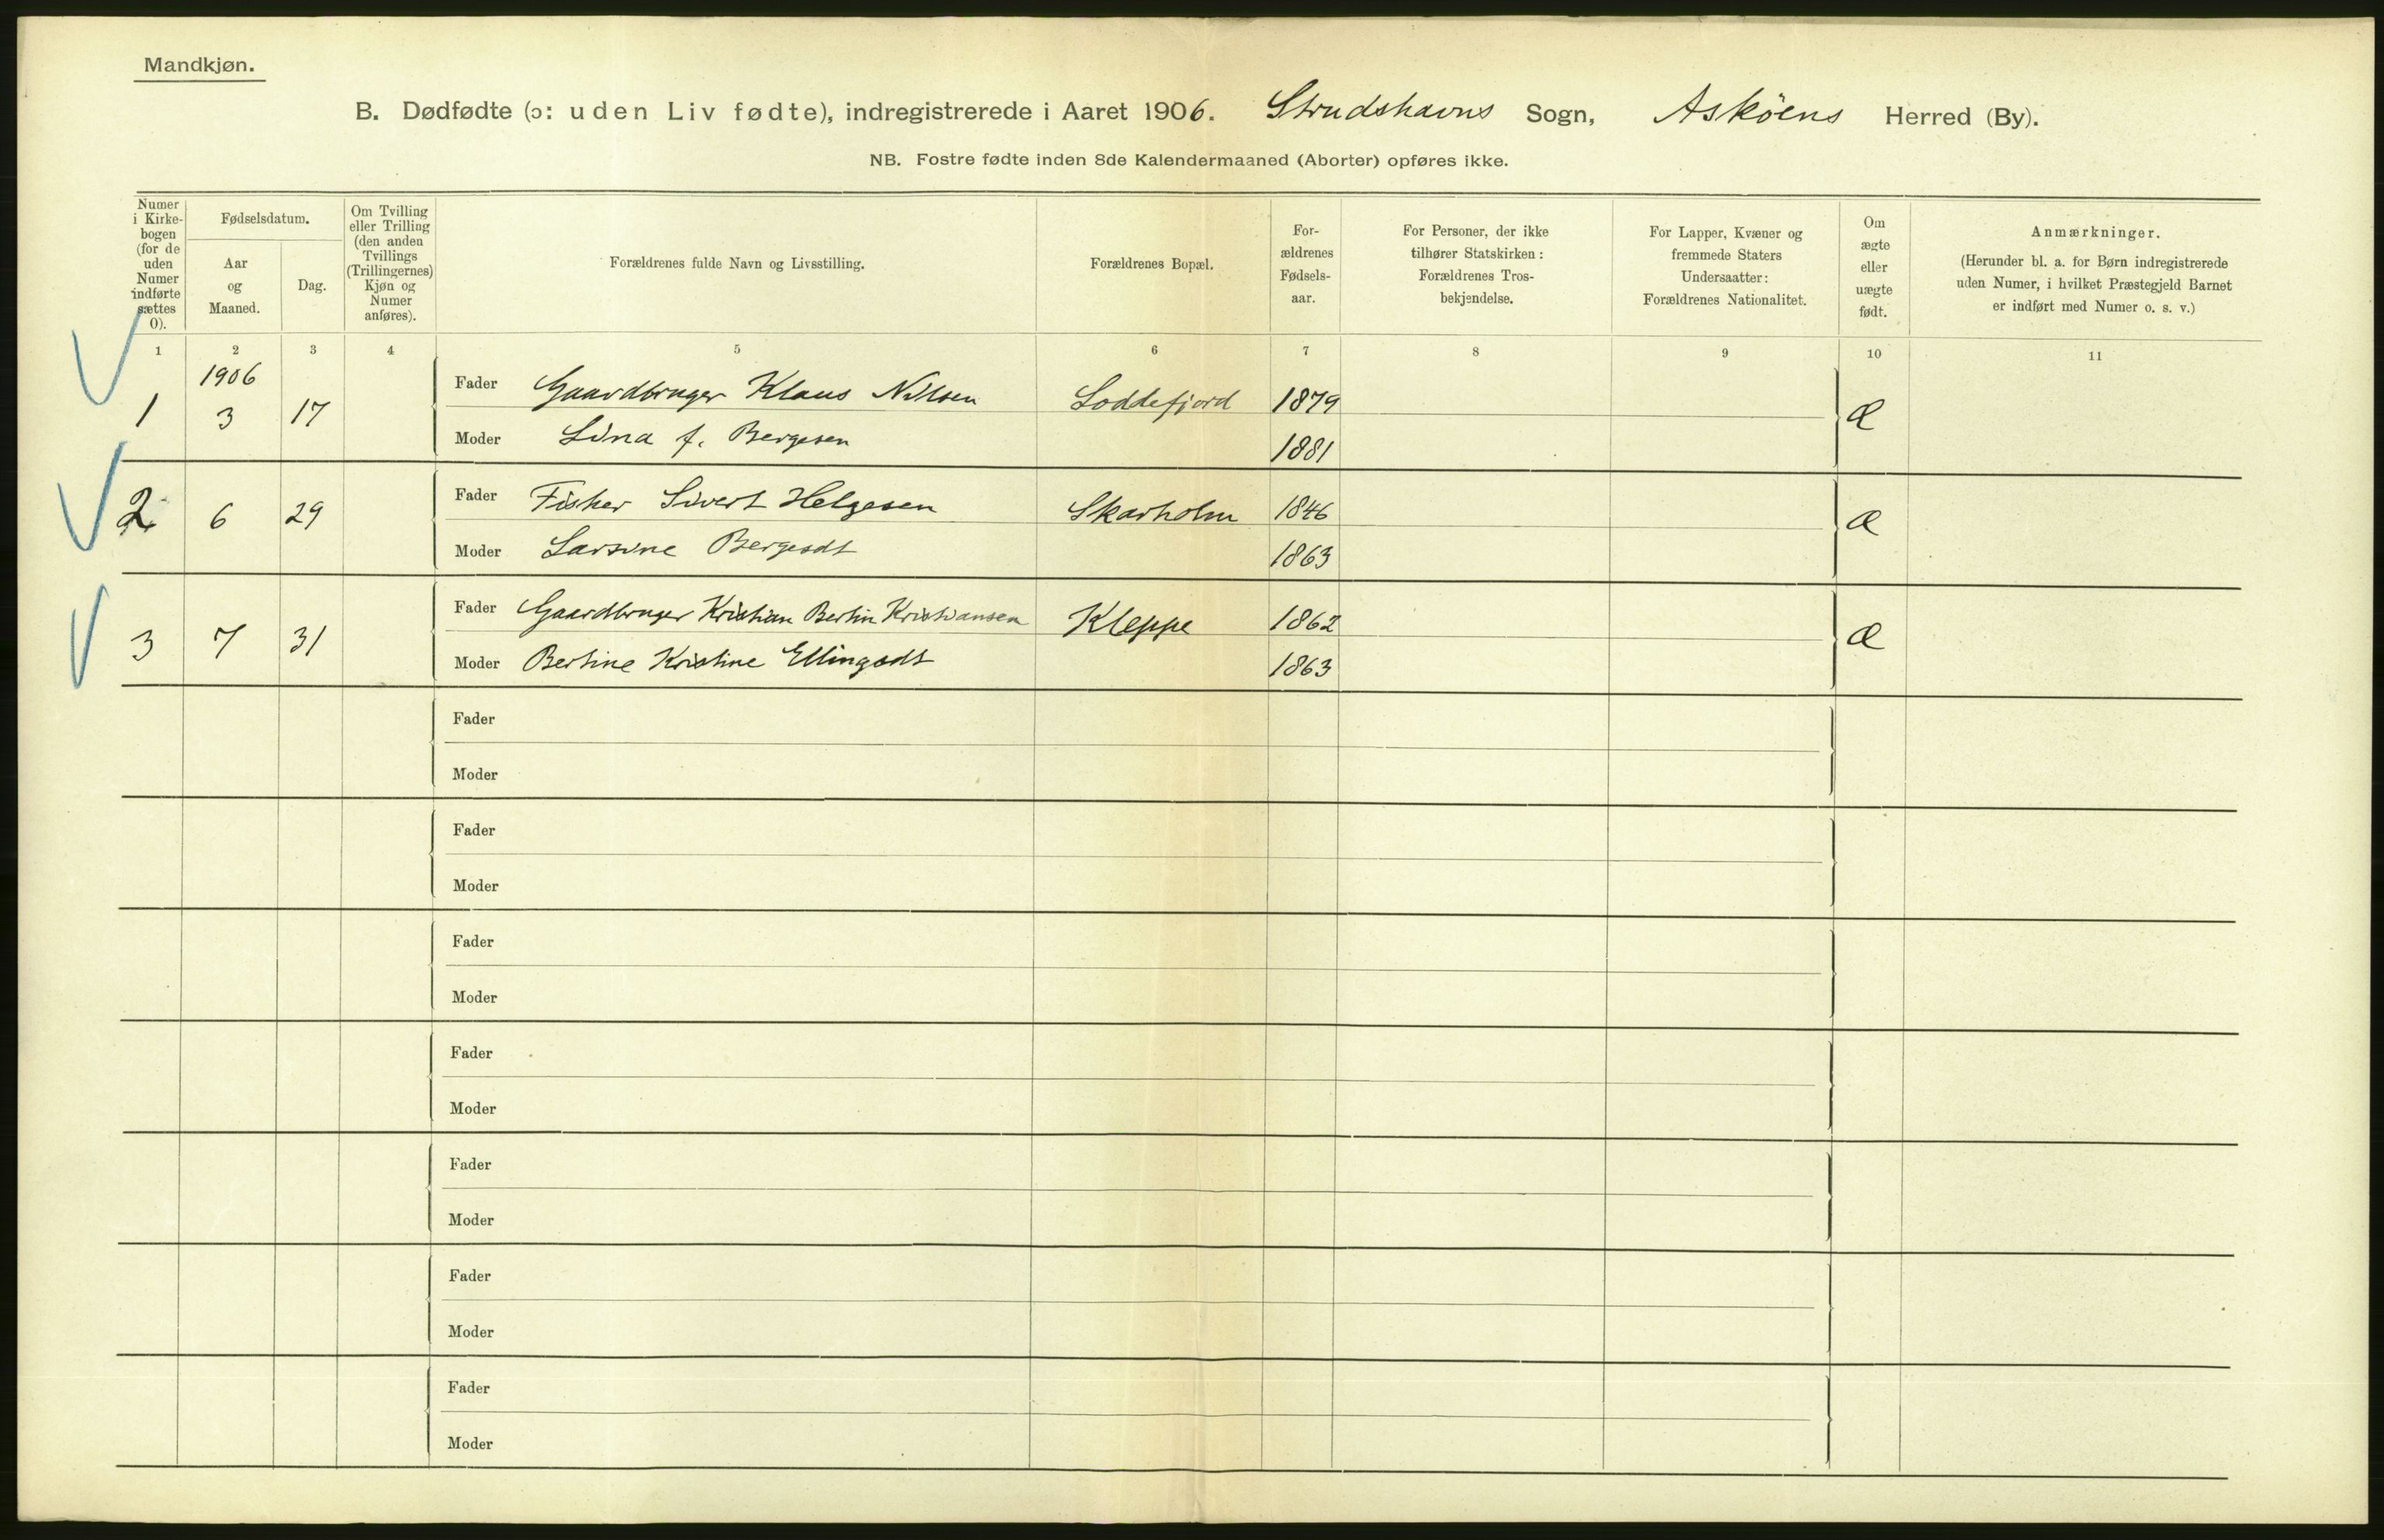 Mandkjøn.
B. Dødfødte (ɔ: uden Liv fødte), indregistrerede i Aaret 1906. Strudshavns Sogn, Askøens Herred (By).
NB. Fostre fødte inden 8de Kalendermaaned (Aborter) opføres ikke.
Numer i Kirke-bogen (for de uden Numer indførte sættes 0).
Fødselsdatum.
Aar og Maaned.
Dag.
Om Tvilling eller Trilling (den anden Tvillings (Trillingernes) Kjøn og Numer anføres).
Forældrenes fulde Navn og Livsstilling.
Forældrenes Bopæl.
For-ældrenes Fødsels-aar.
For Personer, der ikke tilhører Statskirken: Forældrenes Tros-bekjendelse.
For Lapper, Kvæner og fremmede Staters Undersaatter: Forældrenes Nationalitet.
Om ægte eller uægte født.
Anmærkninger.
(Herunder bl. a. for Børn indregistrerede uden Numer, i hvilket Præstegjeld Barnet er indført med Numer o. s. v.)
1 2 3 4 5 6 7 8 9 10 11
1906
1 3 17 Fader Gaardbruger Klaus Nilsen Loddefjord 1879 Æ
Moder Lina f. Bergesen 1881
2 6 29 Fader Fisker Sivert Helgesen Skarholm 1846 Æ
Moder Larsine Bergesdt 1863
3 7 31 Fader Gaardbruger Kristian Bertin Kristiansen Kleppe 1862 Æ
Moder Bertine Kristine Ellingsdt 1863
Fader
Moder
Fader
Moder
Fader
Moder
Fader
Moder
Fader
Moder
Fader
Moder
Fader
Moder